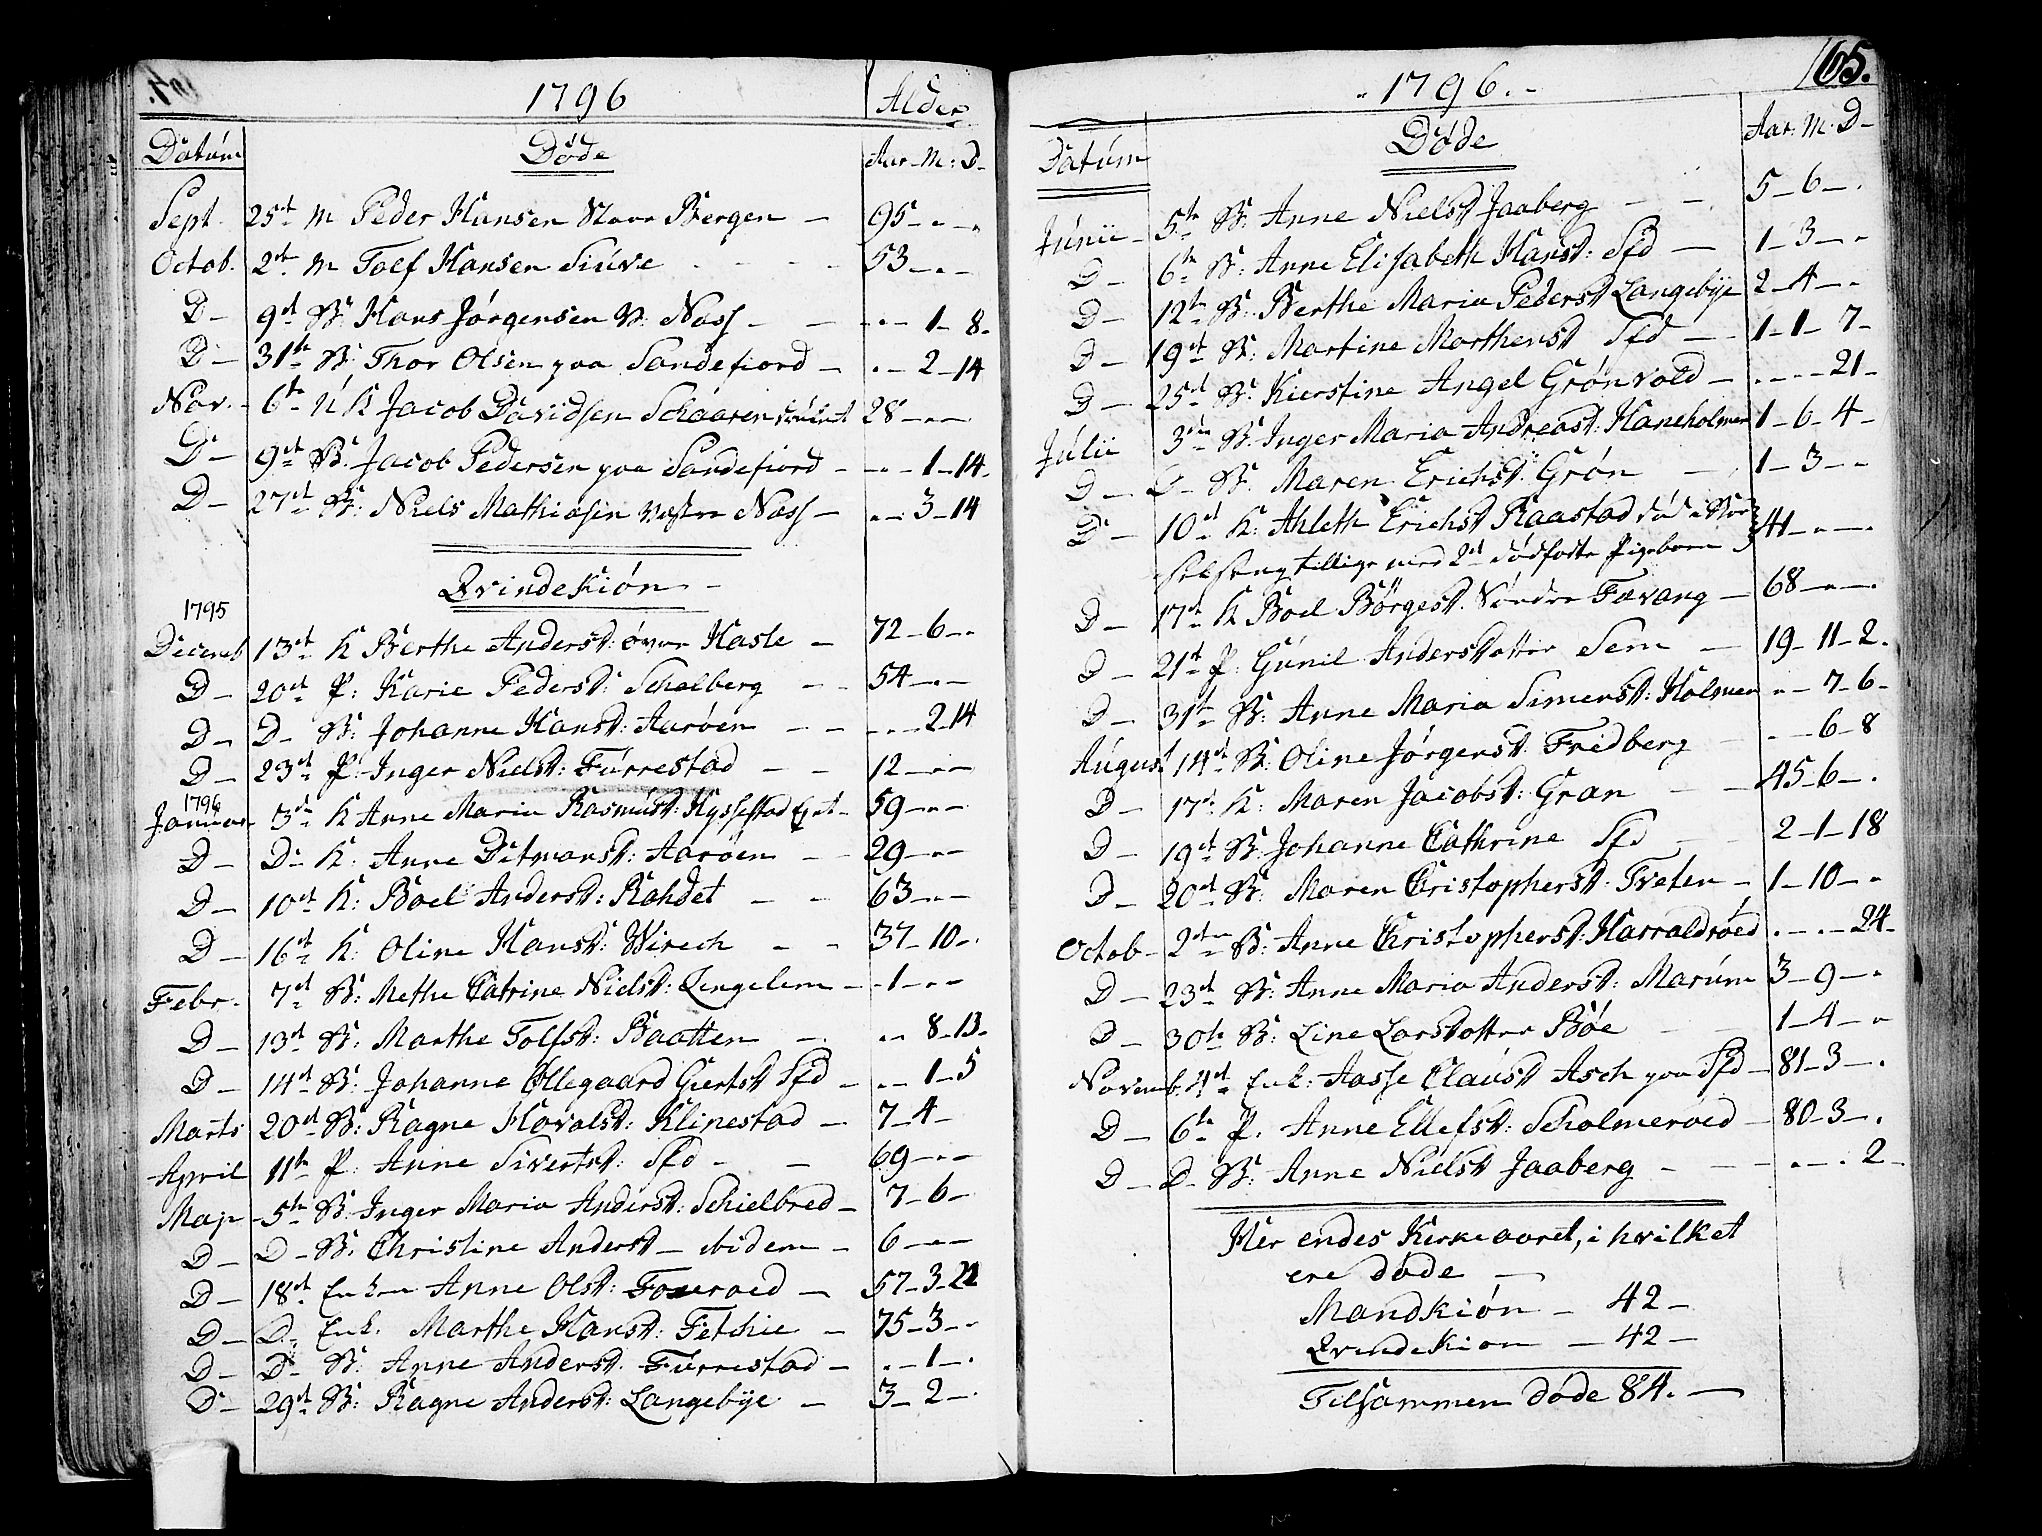 1796 Alder
Datúm Døde Aar-M:D-
Sept. 25de M Peder Hansen Store Bergen - 95-"-"
Octob. 2de M Tolf Hansen Siúve - 53-"-
D- 9de B: Hans Jørgensen V: Nass - "-1-8.
D- 31te B: Thor Olsen paa Sandefiord - "-2-14
Nov. - 6te U K Jacob Davidsen Schaaren 28-"-
D- 9de B. Jacob Pedersen paa Sandefiord - "-1-14.
D- 27de B: Niels Mathiasen Vestre Nass - "-3-14
Qvindekión -
1795
Decemb 13de K Berthe Anderst: øvre Hasle - 72-6-"
D- 20de P: Karie Pederst: Scholberg - 54-"-
D- D- B: Johanne Hanst: Aarøen - "-2-14
D- 23de P: Inger Nielst: Fúrrestad - 12-"-
1796
Januar 3die K Anne Maria Rasmúst: Hyssestad 59-"-
D- D- K: Anne Ditmanst: Aaroen - 29-"-
D- 10de K: Boel Anderst: Rahdet - 63-"-
D- 16de K: Oline Hanst: Wirech - 37-10-"
Febr. 7de B: Methe Catrine Nielst: Lengelem - -1-"-
D- 13de B: Marthe Tolfst: Baatten - "-8-13.
D- 14de B: Johanne Øllegaard Giertst Sfd - "-1-5
Marts 20de B: Ragne Havalst: Klinestad - 7-4-
April 11te P: Anne Sivertst: Sfd - 69-"-
Maji - 5te B: Inger Maria Anderst: Schielbred - 7-6-
D- D- B: Christine Anderst - ibidem - 6-"-
D- 18de Enken Anne Olst: Foxeroed - 57-3-22
D- D- Enk. Marthe Hanst: Fetchie - 75-3-"
D- D- B: Anne Anderst. Fúrrestad - "-1-"
D- 29de B: Ragne Anderst: Langebÿe - 3-2-
165.
"1796.-
Datúm Døde Aar: M: D-
Júnii - 5te B: Anne Nielst Jaaberg - 5-6-.
D- 6te B: Anne Elisabeth Hanst: Sfd - 1-3-"
D- 12te B: Berthe Maria Pederst Langebÿe 2-4-"
D- 19de B: Martine Marthenst Sfd - 1-1-7-
D- 25de B: Kierstine Angel Grónvold - "-"-21-
Júlii 3die B: Inger Maria Andreast: Haneholmen 1-6-4-
D- D- B: Maren Erichst: Grón - 1-3-"
D- 10de K: Ahleth Erichst Raastad død i Bar- 41-"-
selseng tillige med 2de dødfødte Pigebørn
D- 17de K Boel Børgest. Nóndre Fævang - 68-"-
D- 21de P: Gúnil Andersdotter Sem - 19-11-2.
D- 31te B: Anne Maria Simenst: Holmen "-7-6-
Aúgust 14de B: Oline Jørgenst: Fridberg - "-6-8
D- 17de K: Maren Jacobst: Gran - 45-6-.
D- 19de B: Johanne Cathrine Sfd - 2-1-18
D- 20de B: Maren Christopherst. Tveten - 1-10-"
Octob- 2den B: Anne Christopherst: Harraldróed "-"-24-
D- 23de B: Anne Maria Anderst: Marúm 3-9-"
D- 30te B: Line Larsdotter Bøe - 1-4-"
Novemb. 4de Enk: Aasse Claúst Asch paa Sfd - 81-3-.
D- 6te P. Anne Ellefst: Scholmeroed - 80-3-.
D- D- B: Anne Nielst Jaaberg - "-"-2-
Her endes Kirkeaaret, i hvilket
ere døde -
Mandkión - 42-
Qvindekion - 42-
Tilsammen døde 84. -